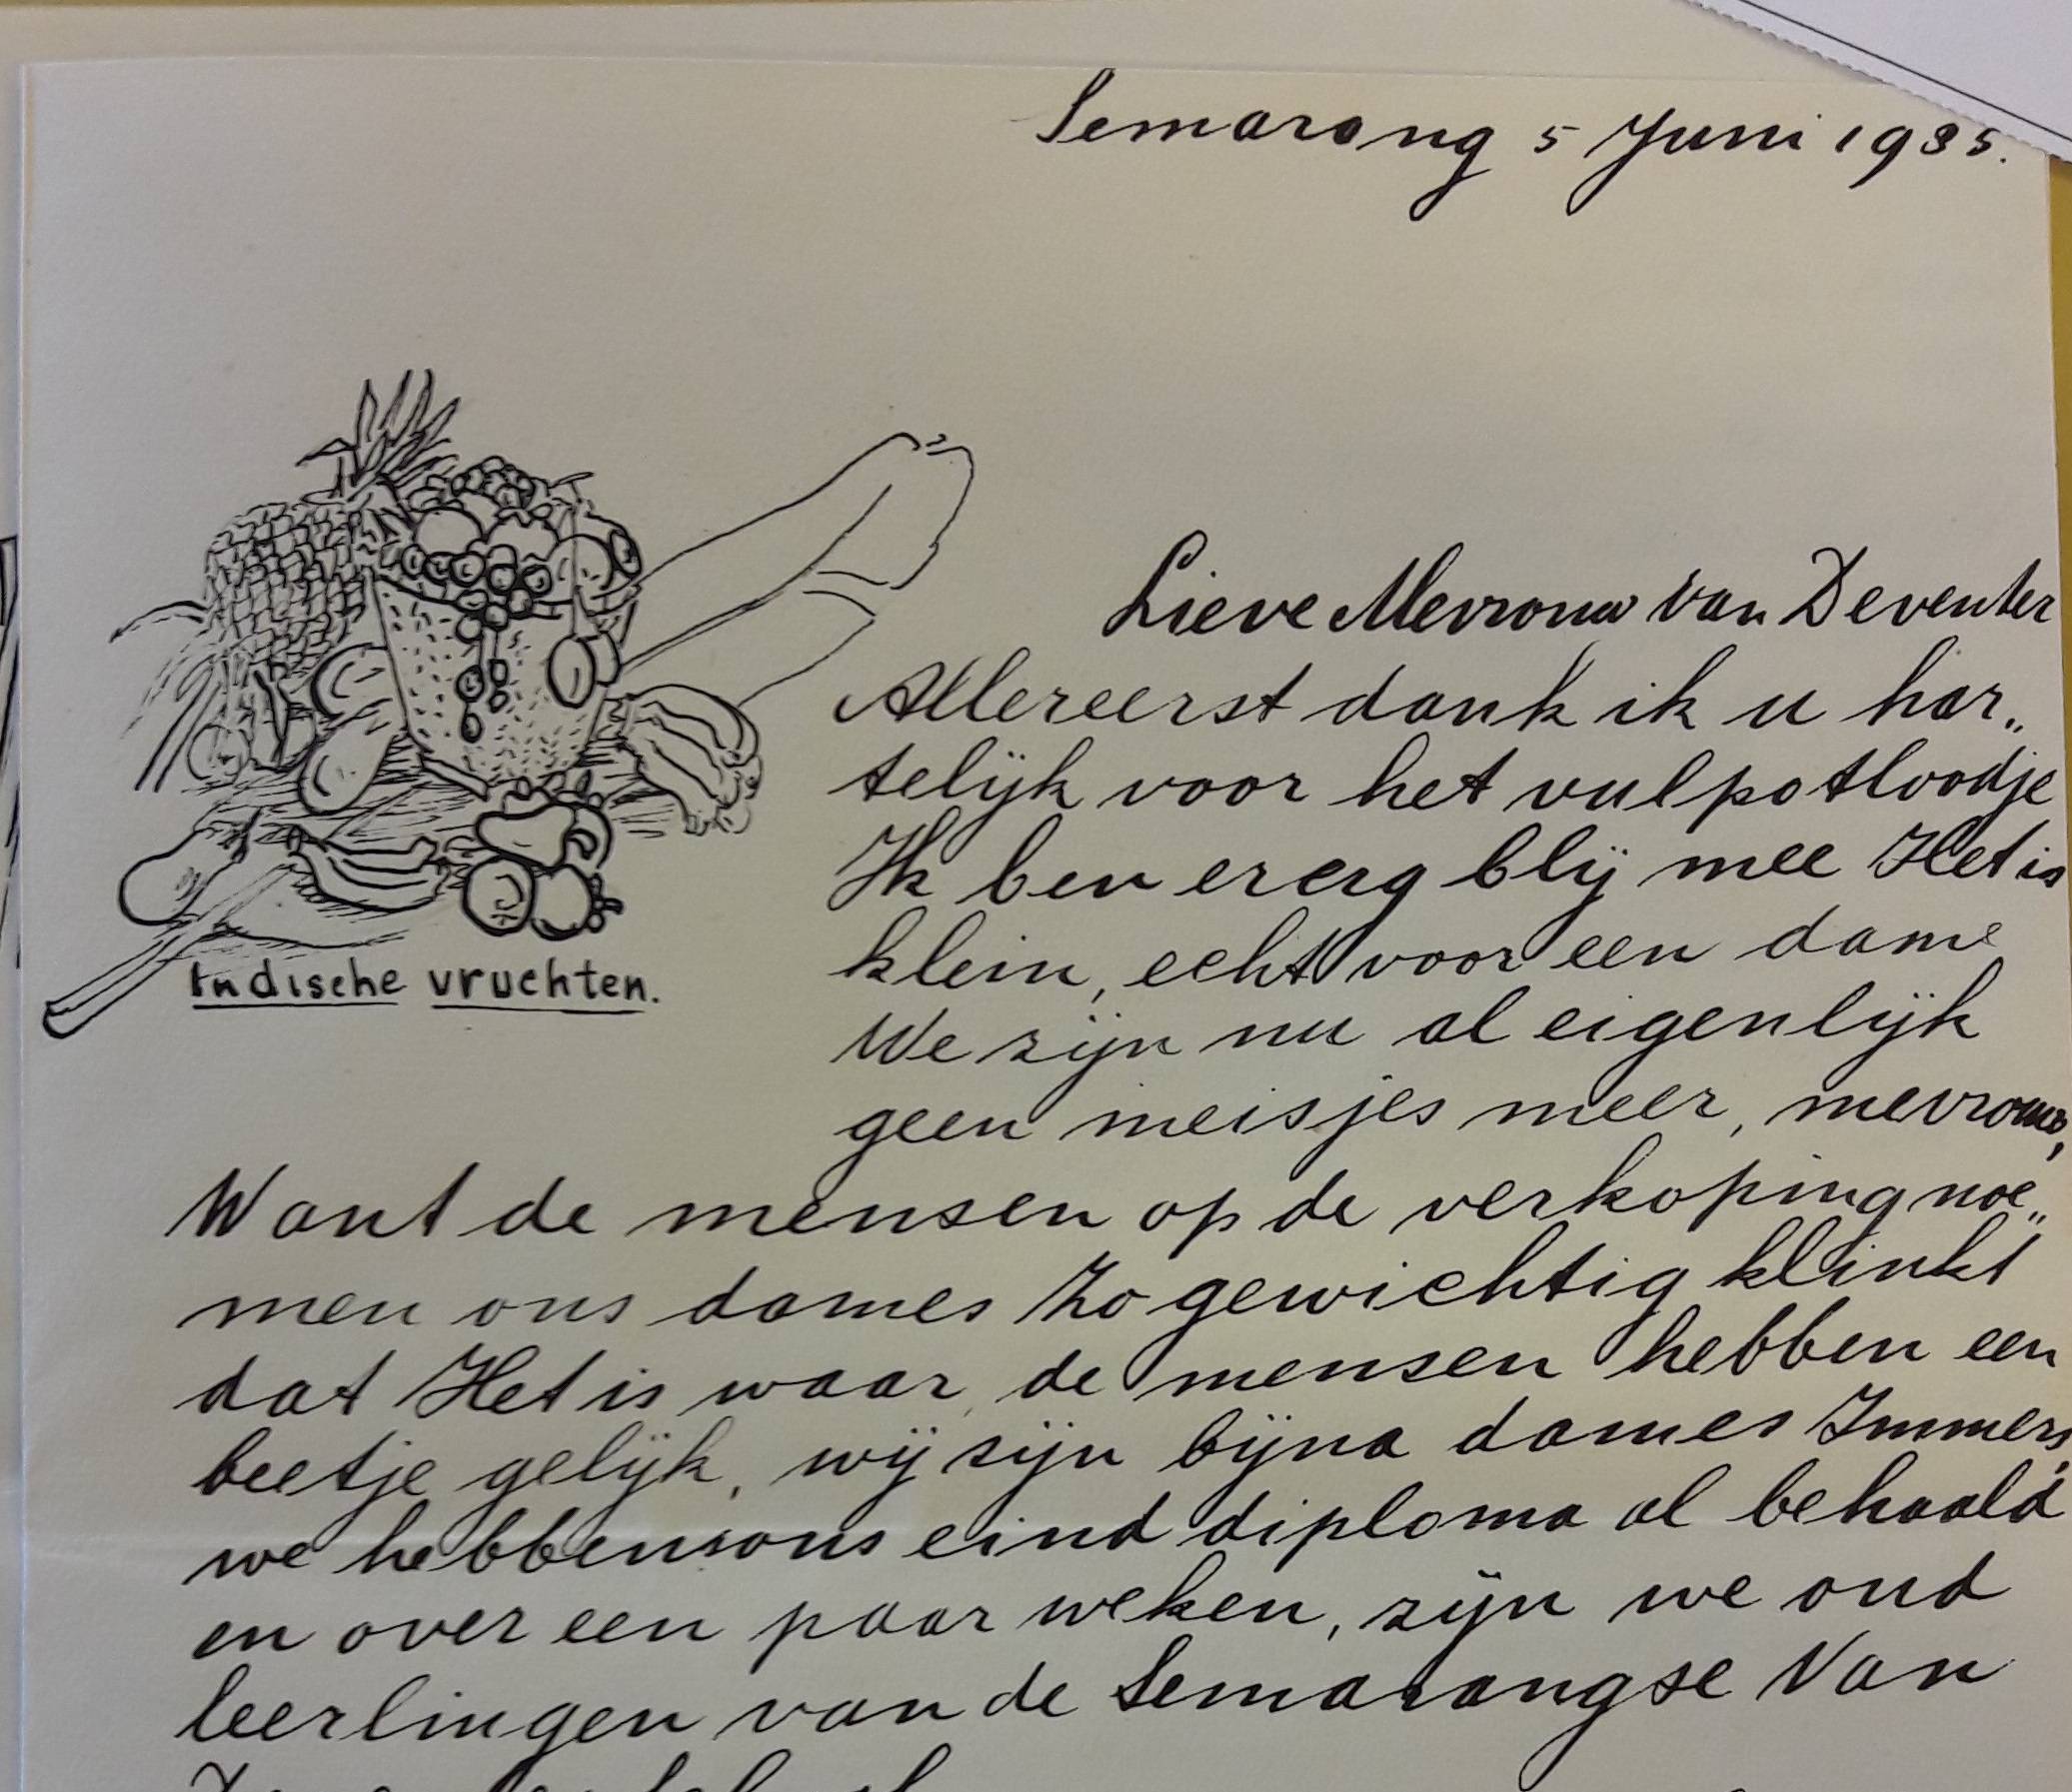 Semarang 5 Juni 1935.
Lieve Mevrouw van Deventer
Allereerst dank ik u har„
telijk voor het vulpotloodje
Ik ben ererg blij mee Het is
klein, echt voor een dame
We zijn nu al eigenlijk
geen meisjes meer, mevrouw,
Indische vruchten.
Want de mensen op de verkoping noe„
men ons dames Zo gewichtig klinkt
dat Het is waar, de mensen hebben een
beetje gelijk, wij zijn bijna dames Immers,
we hebben ons eind diploma al behaald
en over een paar weken, zijn we oud
leerlingen van de Semarangse Van